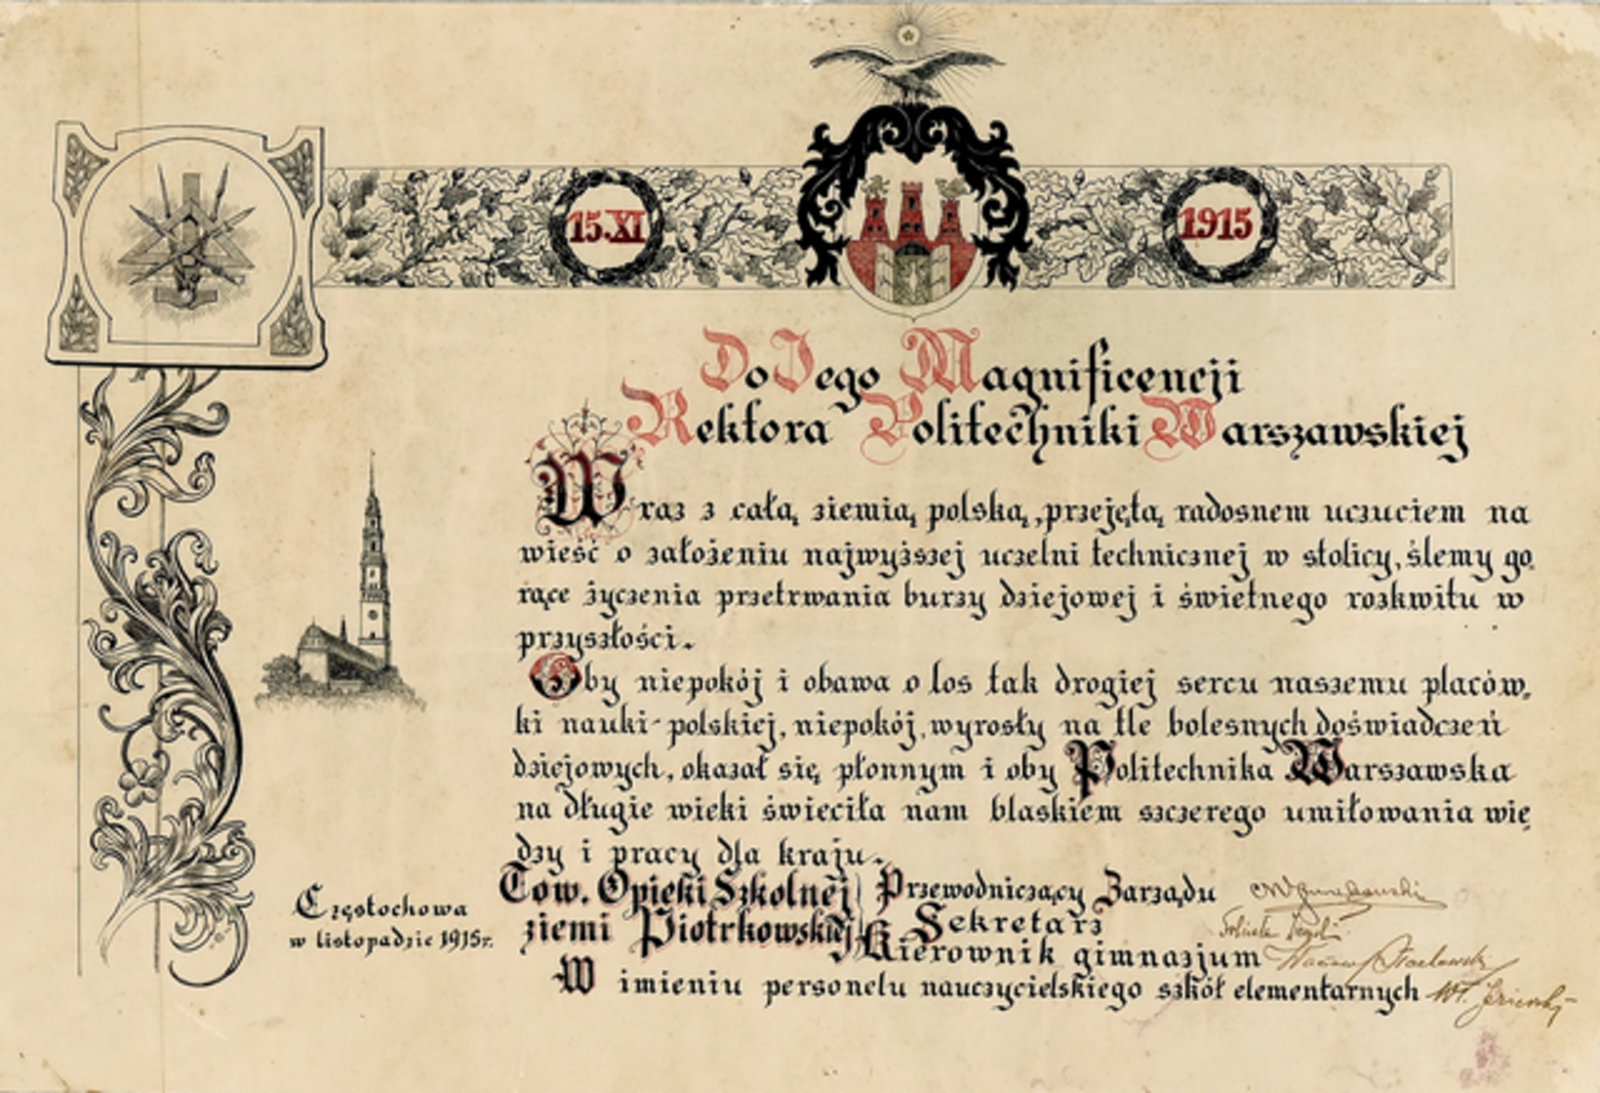 15.XI
1915
Do Jego Magnificencji
Rektora Politechniki Warszawskiej
Wraz z całą ziemią polską, przejętą radosnem uczuciem na
wieść o założeniu najwyższej uczelni technicznej w stolicy, ślemy go-
rące życzenia przetrwania burzy dziejowej i świetnego rozkwitu w
przyszłości.
Oby niepokój i obawa o los tak drogiej sercu naszemu placów-
ki nauki polskiej, niepokój, wyrosły na tle bolesnych doświadczeń
dziejowych, okazał się płonnym i oby Politechnika Warszawska
na długie wieki świeciła nam blaskiem szczerego umiłowania wie
dzy i pracy dla kraju.
Tow. Opieki Szkolnej
ziemi Piotrkowskiej
Przewodniczący Zarządu
Sekretarz
Kierownik gimnazjum
W imieniu personelu nauczycielskiego szkół elementarnych
Częstochowa
w listopadzie 1915r.